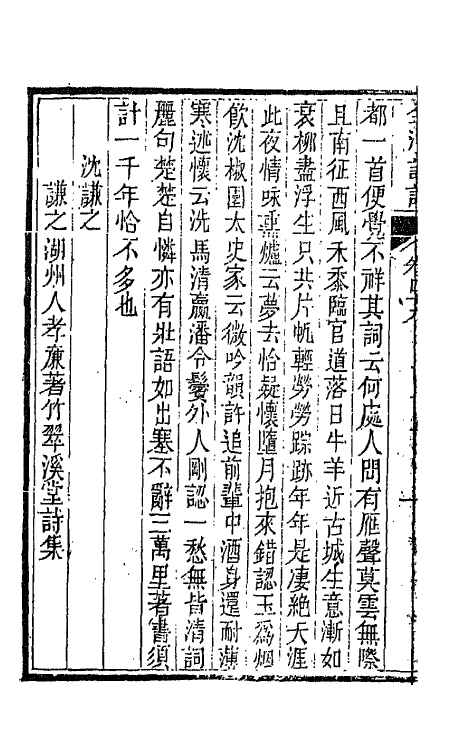 都一首便覺不祥其詞云何處人間有雁聲莫雲無際
且南征西風禾黍臨官道落日牛羊近古城生意漸如
衰柳盡浮生只共片帆輕勞勞踪跡年年是凄絕天涯
此夜情咏熏爐云夢去恰疑懷墮月抱來錯認玉爲烟
飲沈椒園太史家云微吟韻許追前輩中酒身還耐薄
寒述懷云洗馬清羸潘令鬢外人剛認一愁無皆清詞
麗句楚楚自憐亦有壯語如出塞不辭三萬里著書須
計一千年恰不多也
沈謙之
謙之湖州人孝廉著竹翠溪堂詩集